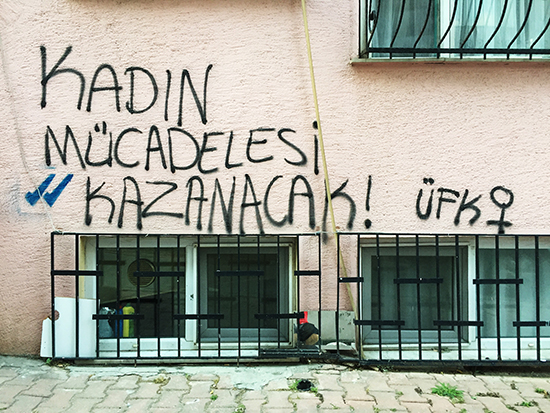 KADIN
MÜCADELESİ
KAZANACAK! ÜFK♀